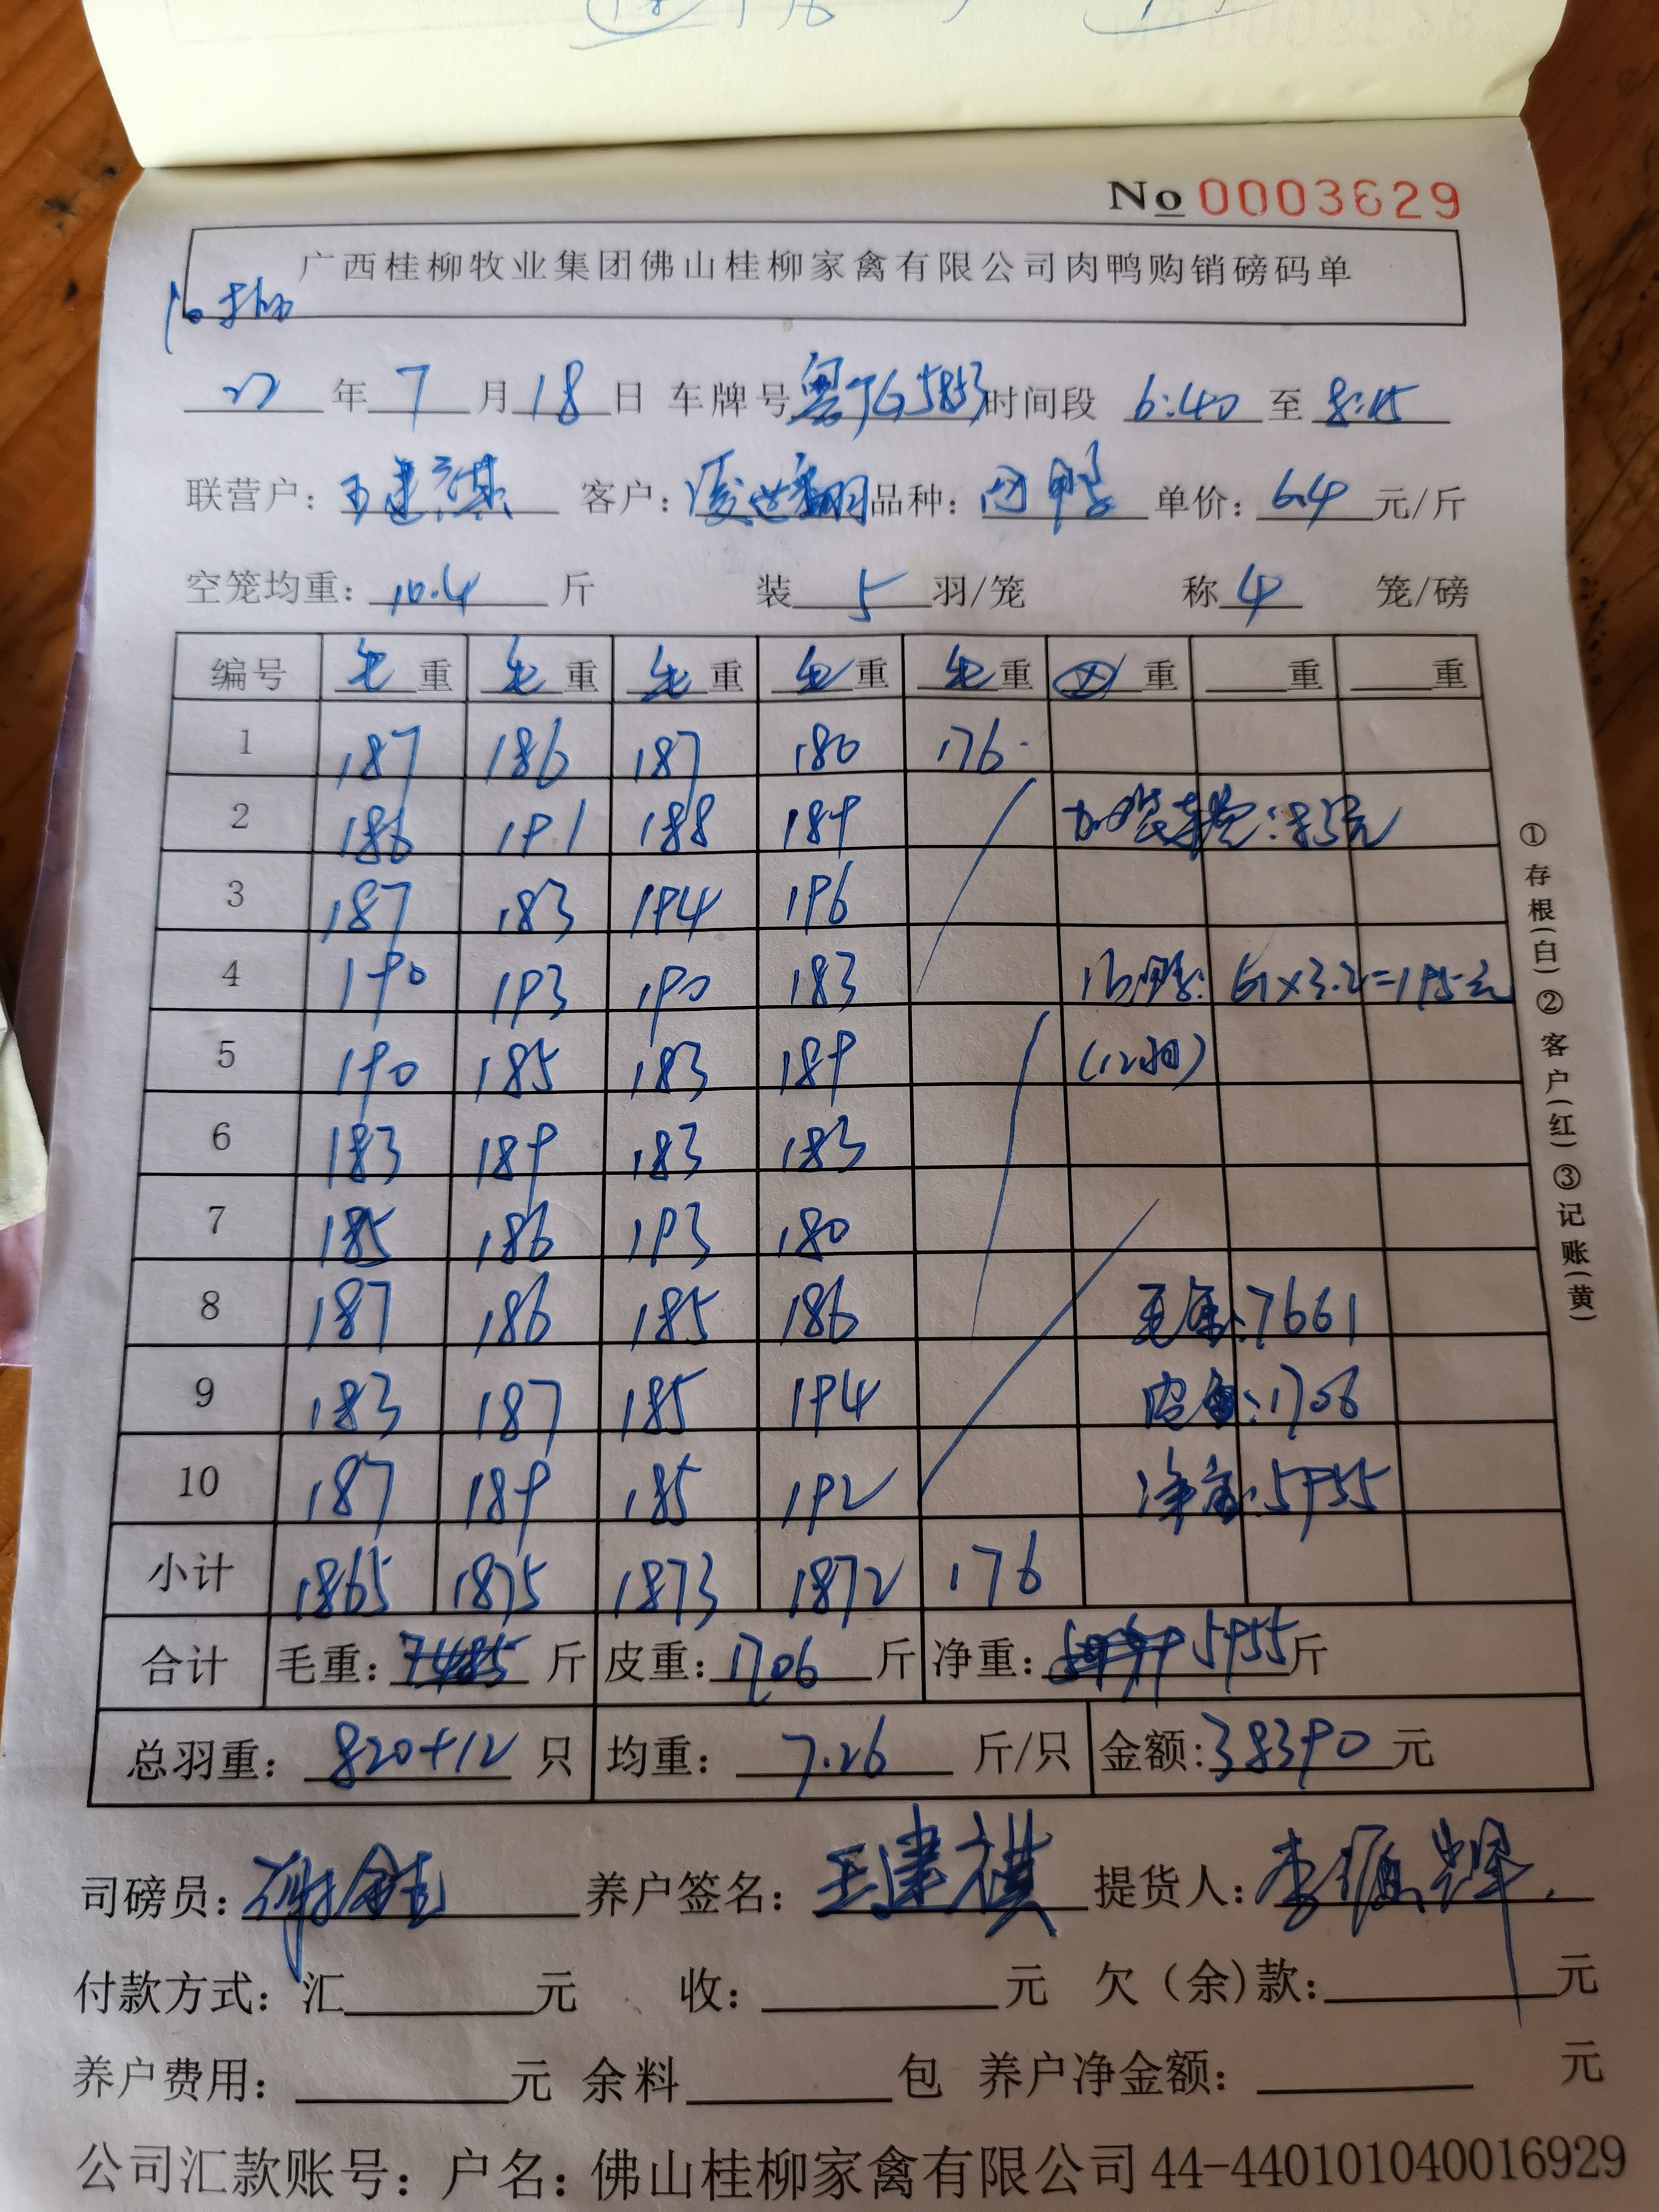 No 0003629
广西桂柳牧业集团佛山桂柳家禽有限公司肉鸭购销磅码单
22 年 7 月 18 日 车牌号 粤JG5853 时间段 6:40 至 8:15
联营户: 王建祺 客户: 品种: 肉鸭 单价: 6.4 元/斤
空笼均重: 10.4 斤 装 5 羽/笼 称 4 笼/磅
编号 毛重 毛重 毛重 毛重 毛重 重 重 重
1 187 186 187 180 176
2 186 191 188 189 加装车费:85元
3 187 183 194 196
4 190 193 190 183 鸭: 61×3.2=195元
5 190 185 183 189 (12羽)
6 183 189 183 183
7 185 186 193 180
8 187 186 185 186 毛重:7661
9 183 187 185 194 皮重:1706
10 187 189 185 192 净重:5955
小计 1865 1875 1873 1872 176
合计 毛重: 7485 斤 皮重: 1706 斤 净重: 5955 斤
总羽重: 820+12 只 均重: 7.26 斤/只 金额: 38390 元
司磅员: 养户签名: 王建祺 提货人: 李
付款方式: 汇 元 收: 元 欠(余)款: 元
养户费用: 元 余料 包 养户净金额: 元
公司汇款账号: 户名: 佛山桂柳家禽有限公司 44-440101040016929
①存根(白)②客户(红)③记账(黄)